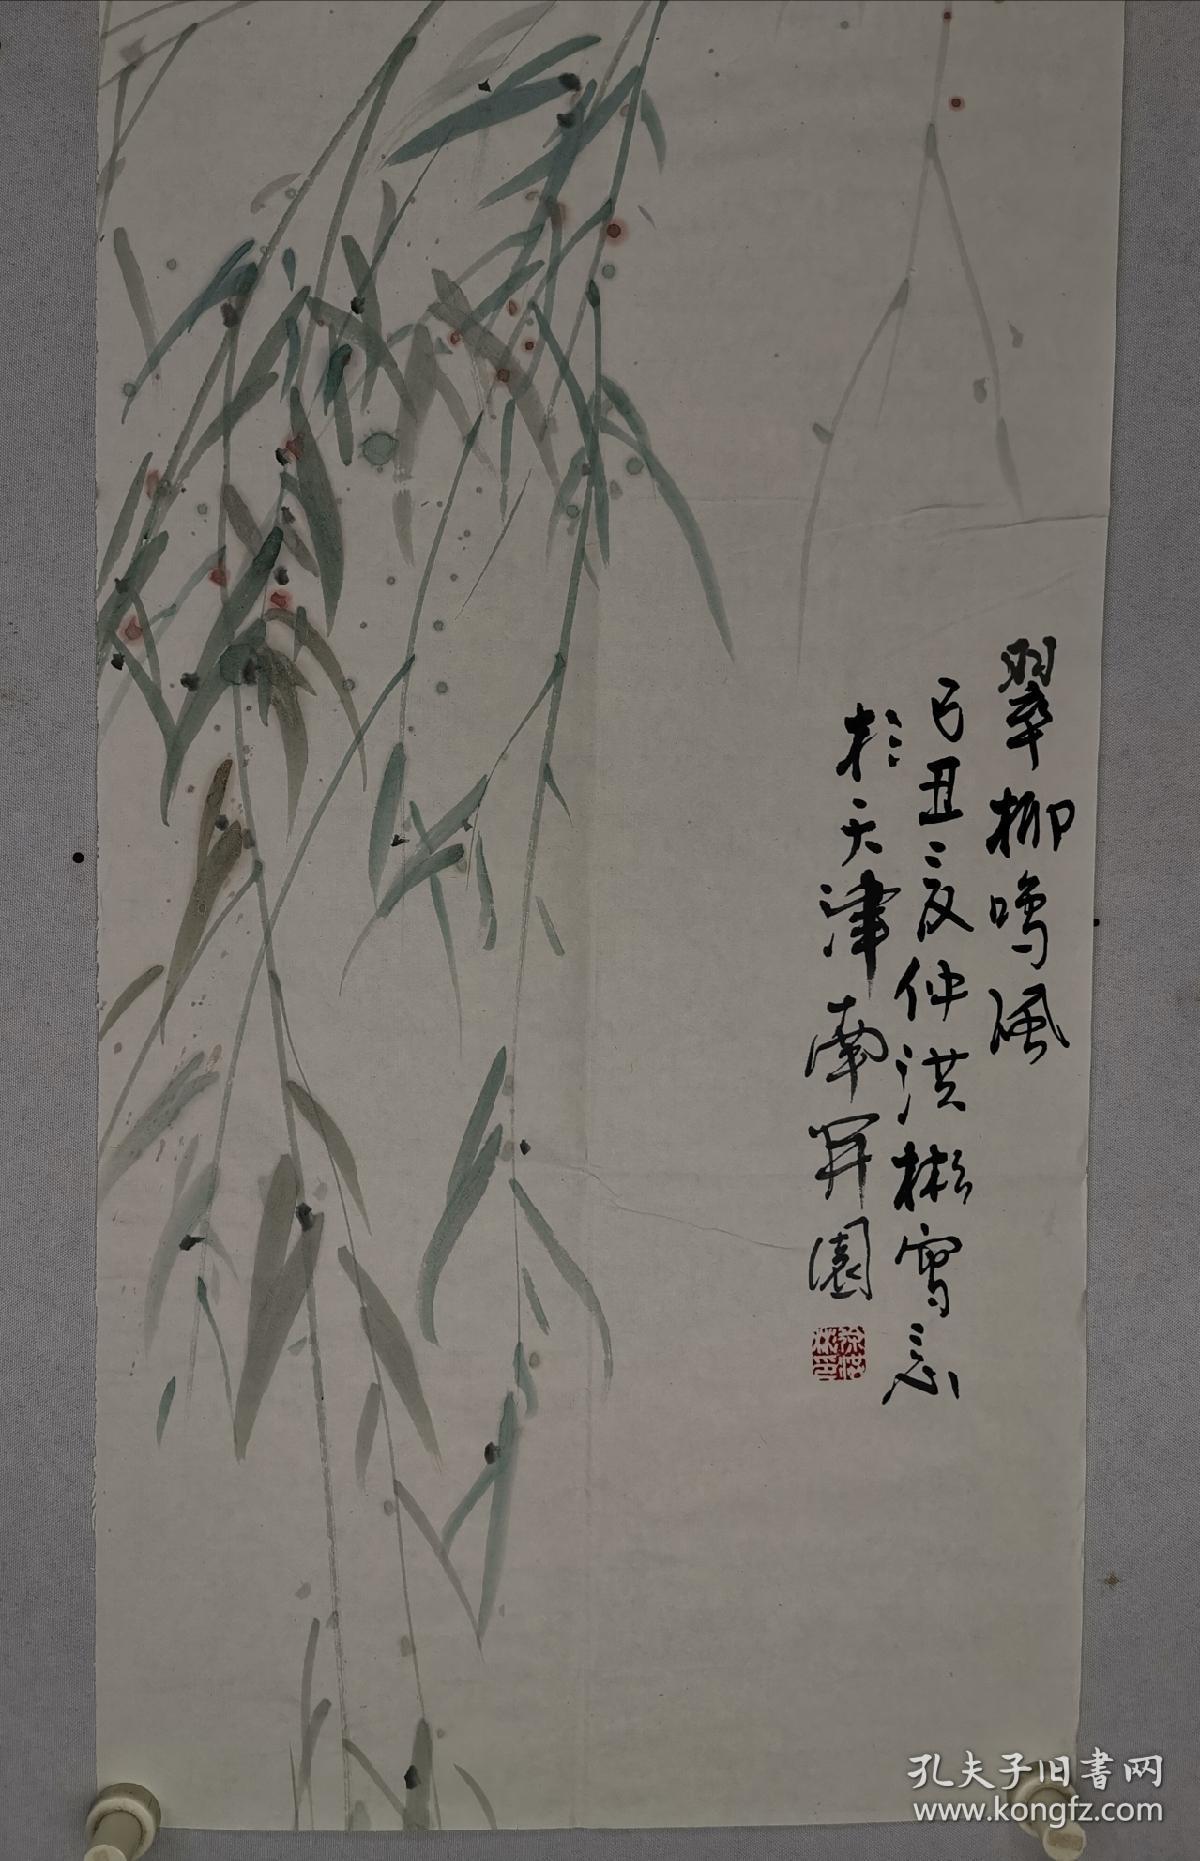 翠柳鸣风
己丑之夏仲洪彬写意
於天津南开园
孔夫子旧书网
www.kongfz.com